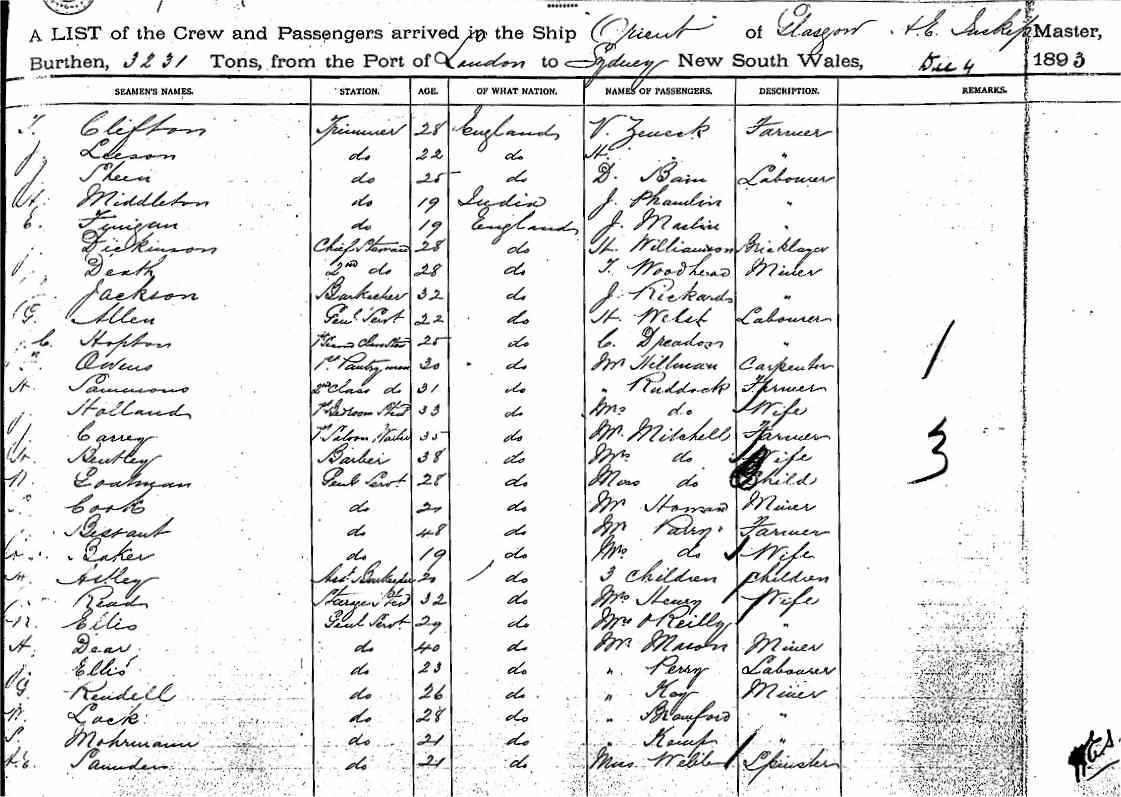 A LIST of the Crew and Passengers arrived in the Ship Orient of Glasgow A.E. Master,
Burthen, 3231 Tons, from the Port of London to Sydney New South Wales, Dec 4 1893
SEAMEN'S NAMES. STATION. AGE. OF WHAT NATION. NAMES OF PASSENGERS. DESCRIPTION. REMARKS.
T. Clifton Trimmer 28 England V. Farmer
J. Leeson do 22 do H. " "
J. do 25 do D. Bain Labourer
W. Middleton do 19 India J. "
E. Finigan do 19 England J. "
Dickinson Chief Steward 28 do H. Williamson Bricklayer
Death 2nd do 28 do T. Woodhead Miner
Jackson Barkeeper 32 do J. Rickards "
G. Allen Genl Servt 22 do H. Labourer
C. Hopton 25 do C. "
" Owens 1st Pantryman 30 do Mr Hillman Carpenter 1
H. Sammons 2nd Class do 31 do " Ruddock Farmer
Holland 1st Bedroom Stwd 33 do Mrs do Wife
J. Carrey 1st Saloon Waiter 35 do Mr. Mitchell Farmer
H. Bentley Barber 38 do Mrs do Wife 3
N. Genl Servt 28 do Miss do Child
Cook do 21 do Mr Homan Miner
Bessant do 48 do Mr Parry Farmer
Baker do 19 do Mrs do Wife
M. Astley Asst Barkeeper 20 do 3 children children
Read Stwd 32 do Mrs Henry Wife
N. Ellis Genl Servt 29 do Mrs O'Reilly "
H. Dear do 40 do Mr Mason Miner
J. Ellis do 23 do " Perry Labourer
G. Rendell do 26 do " Kay Miner
N. Lock do 28 do " "
S. Mohrmann do 21 do " Kemp "
A.E. Saunders do 21 do Miss Webb Spinster